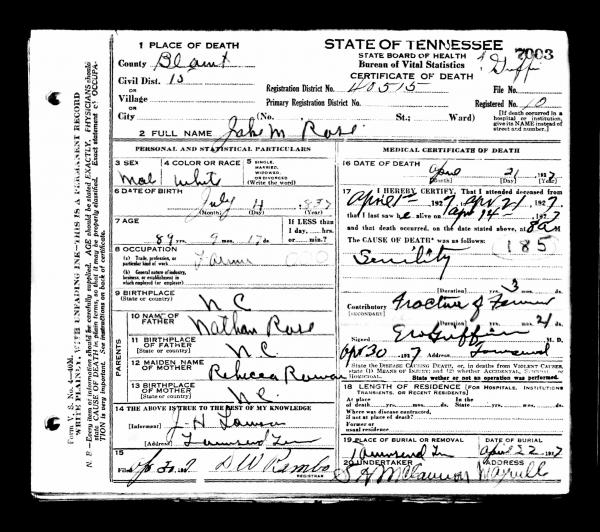 1 PLACE OF DEATH
County Blount
Civil Dist. 15
OR
Village
OR
City (No. St.; Ward)
2 FULL NAME Jake M Rose
STATE OF TENNESSEE
STATE BOARD OF HEALTH
Bureau of Vital Statistics
CERTIFICATE OF DEATH
7003
Registration District No. 40515
File No.
Primary Registration District No.
Registered No. 10
[If death occurred in a hospital or institution, give its NAME instead of street and number.]
PERSONAL AND STATISTICAL PARTICULARS
3 SEX
Mal
4 COLOR OR RACE
White
5 SINGLE, MARRIED, WIDOWED, OR DIVORCED (Write the word)
6 DATE OF BIRTH
July 4 1837
(Month) (Day) (Year)
7 AGE
89 yrs. 9 mos. 17 ds.
If LESS than 1 day, hrs. or min.?
8 OCCUPATION
(a) Trade, profession, or particular kind of work
Farmer
(b) General nature of industry, business, or establishment in which employed (or employer)
9 BIRTHPLACE
(State or country)
N C
PARENTS
10 NAME OF FATHER
Nathan Rose
11 BIRTHPLACE OF FATHER
(State or country)
N C
12 MAIDEN NAME OF MOTHER
Rebecca Rowan
13 BIRTHPLACE OF MOTHER
(State or country)
N C.
14 THE ABOVE IS TRUE TO THE BEST OF MY KNOWLEDGE
(Informant) J. H. Lawson
(Address) Townsend Ten
15
Filed Apr 30 1927 D W Rembo
REGISTRAR
MEDICAL CERTIFICATE OF DEATH
16 DATE OF DEATH
April 21 1927
(Month) (Day) (Year)
17 I HEREBY CERTIFY, That I attended deceased from
April 1st 1927, to Apr 21 1927,
that I last saw h e alive on Apr 14th 1927
and that death occurred, on the date stated above, at 8 am
The CAUSE OF DEATH* was as follows:
185
Senility
(Duration) yrs. 3 mos. ds.
Contributory Fracture of Femur
(SECONDARY)
(Duration) yrs. mos. 21 ds.
Signed M. D.
Apr 30 1927 Address Townsend
18 LENGTH OF RESIDENCE (For Hospitals, Institutions, Transients, or Recent Residents)
At place of death yrs. mos. ds. State yrs. mos. ds.
Where was disease contracted, if not at place of death?
Former or usual residence
19 PLACE OF BURIAL OR REMOVAL
Townsend Tn
DATE OF BURIAL
April 22 1927
20 UNDERTAKER
ADDRESS
Form V. S. No.
WRITE PLAINLY, WITH UNFADING INK—THIS IS A PERMANENT RECORD
N. B.—Every item of information should be carefully supplied. AGE should be stated EXACTLY. PHYSICIANS should state CAUSE OF DEATH in plain terms, so that it may be properly classified. Exact statement of OCCUPATION is very important. See instructions on back of certificate.